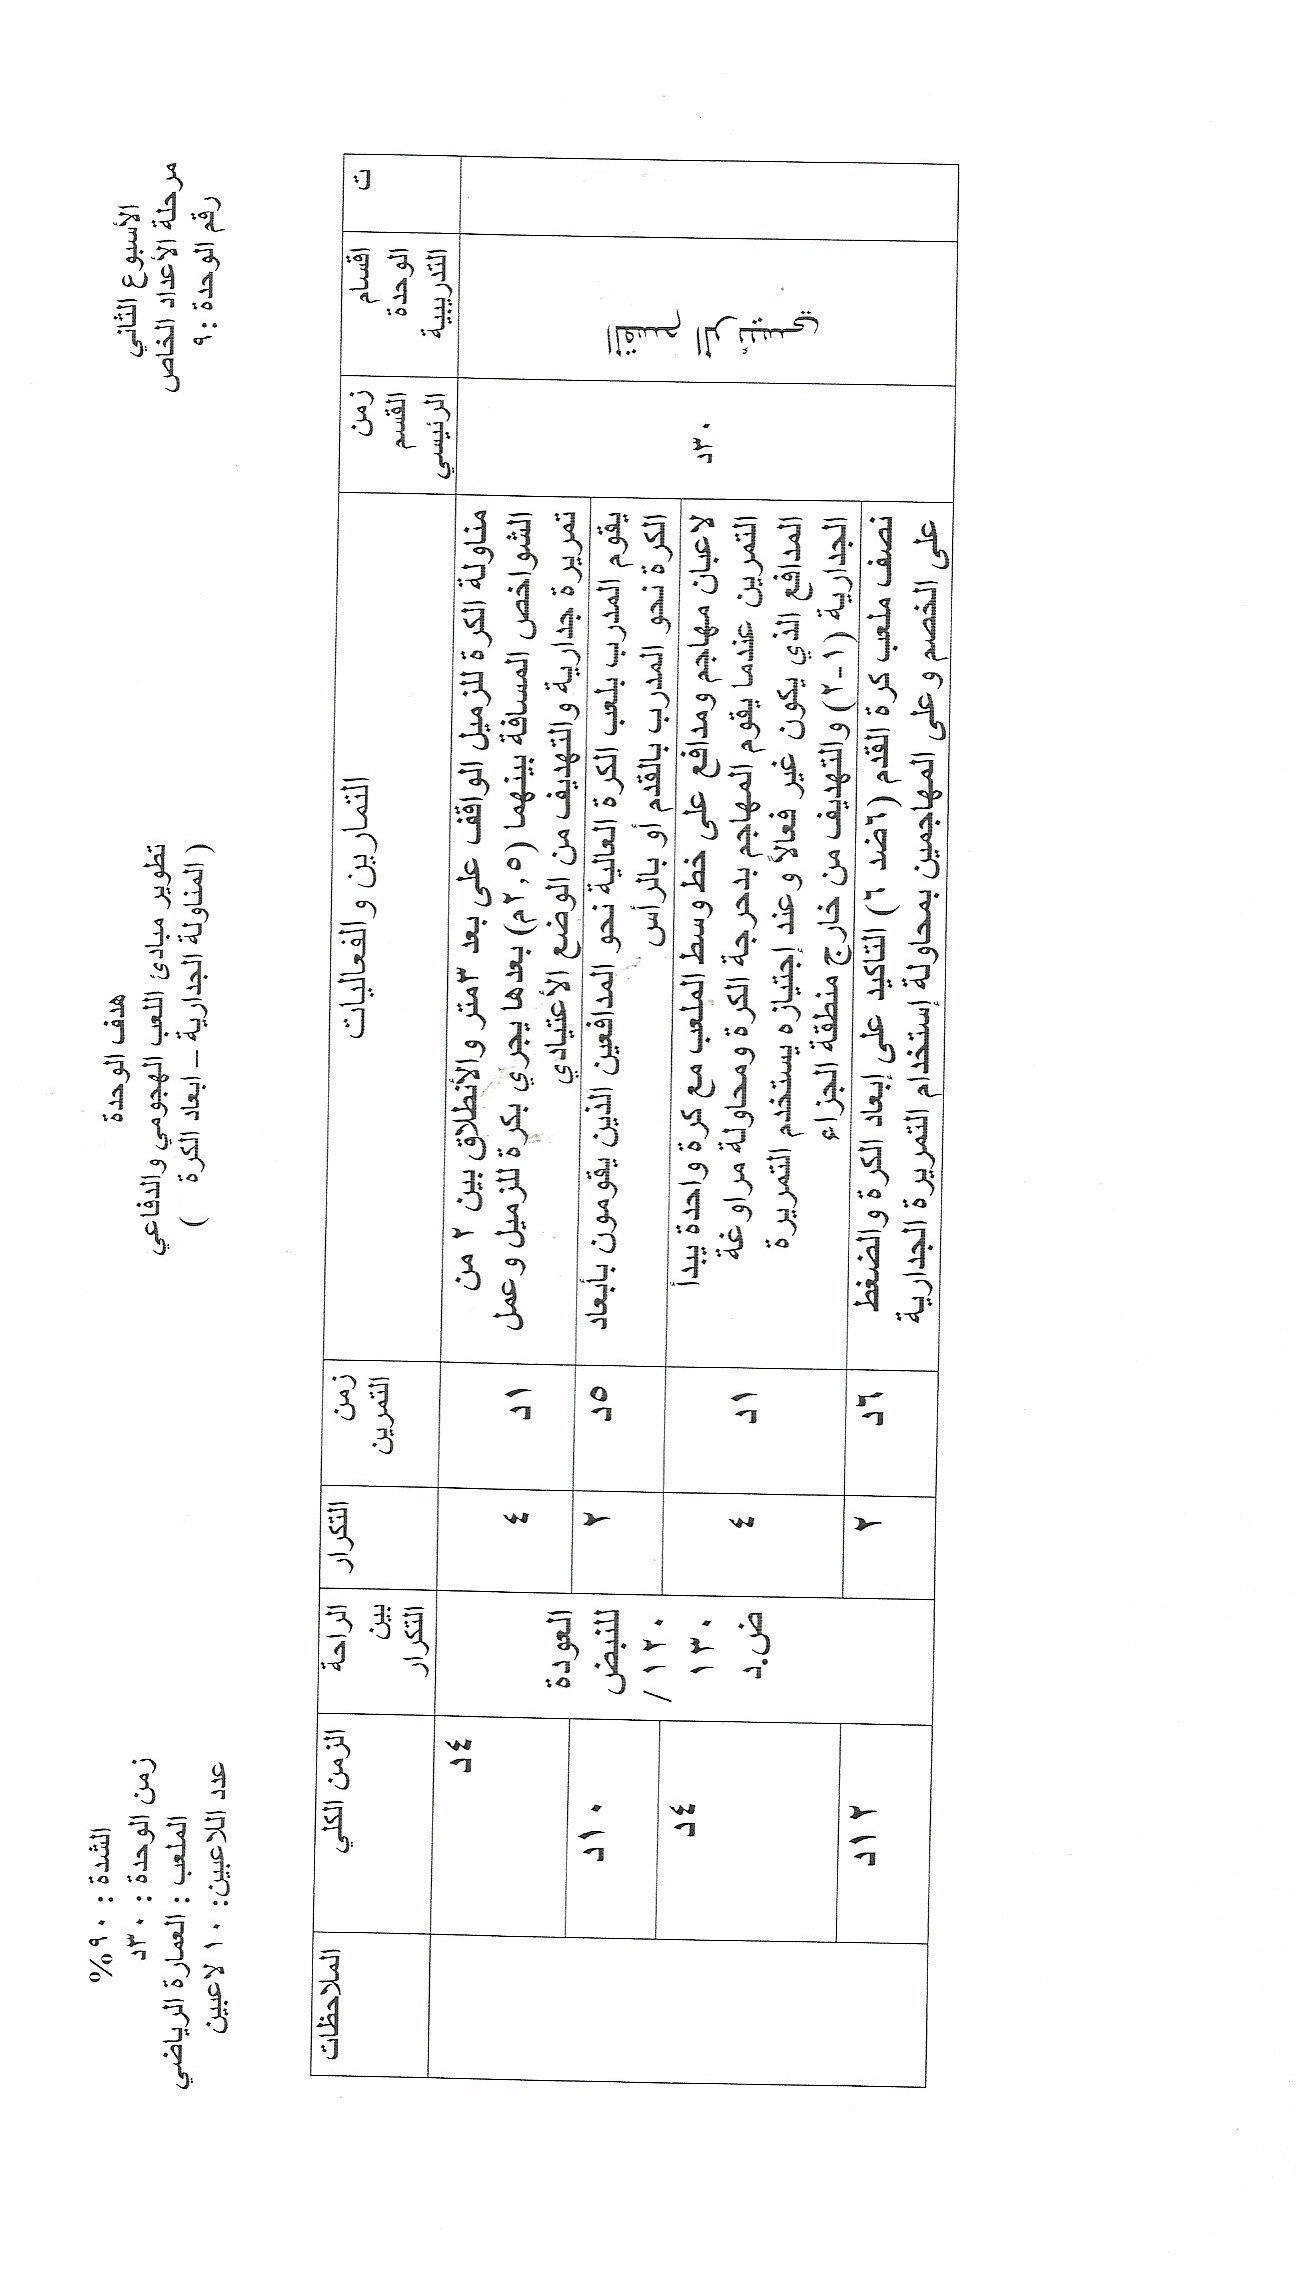 الأسبوع الثاني
مرحلة الأعداد الخاص
رقم الوحدة :٩
هدف الوحدة
تطوير مبادئ اللعب الهجومي والدفاعي
( المناولة الجدارية – ابعاد الكرة )
الشدة : ٩٠%
زمن الوحدة : ٣٠د
الملعب : العمارة الرياضي
عدد اللاعبين: ١٠ لاعبين
ت
اقسام
الوحدة
التدريبية
زمن
القسم
الرئيسي
التمارين والفعاليات
زمن
التمرين
التكرار
الراحة
بين
التكرار
الزمن الكلي
الملاحظات
٣٠د
مناولة الكرة للزميل الواقف على بعد ٣متر والأنطلاق بين ٢ من
الشواخص المسافة بينهما (٢,٥م) بعدها يجري بكرة للزميل وعمل
تمريرة جدارية والتهديف من الوضع الأعتيادي
١د
٤
العودة
للنبض
١٢٠ /
١٣٠
ض.د
٤د
يقوم المدرب بلعب الكرة العالية نحو المدافعين الذين يقومون بأبعاد
الكرة نحو المدرب بالقدم أو بالرأس
٥د
٢
١٠د
لاعبان مهاجم ومدافع على خط وسط الملعب مع كرة واحدة يبدأ
التمرين عندما يقوم المهاجم بدحرجة الكرة ومحاولة مراوغة
المدافع الذي يكون غير فعالاً وعند إجتيازه يستخدم التمريرة
الجدارية (١-٢) والتهديف من خارج منطقة الجزاء
١د
٤
٤د
نصف ملعب كرة القدم (٦ضد ٦) التاكيد على إبعاد الكرة والضغط
على الخصم وعلى المهاجمين بمحاولة إستخدام التمريرة الجدارية
٦د
٢
١٢د